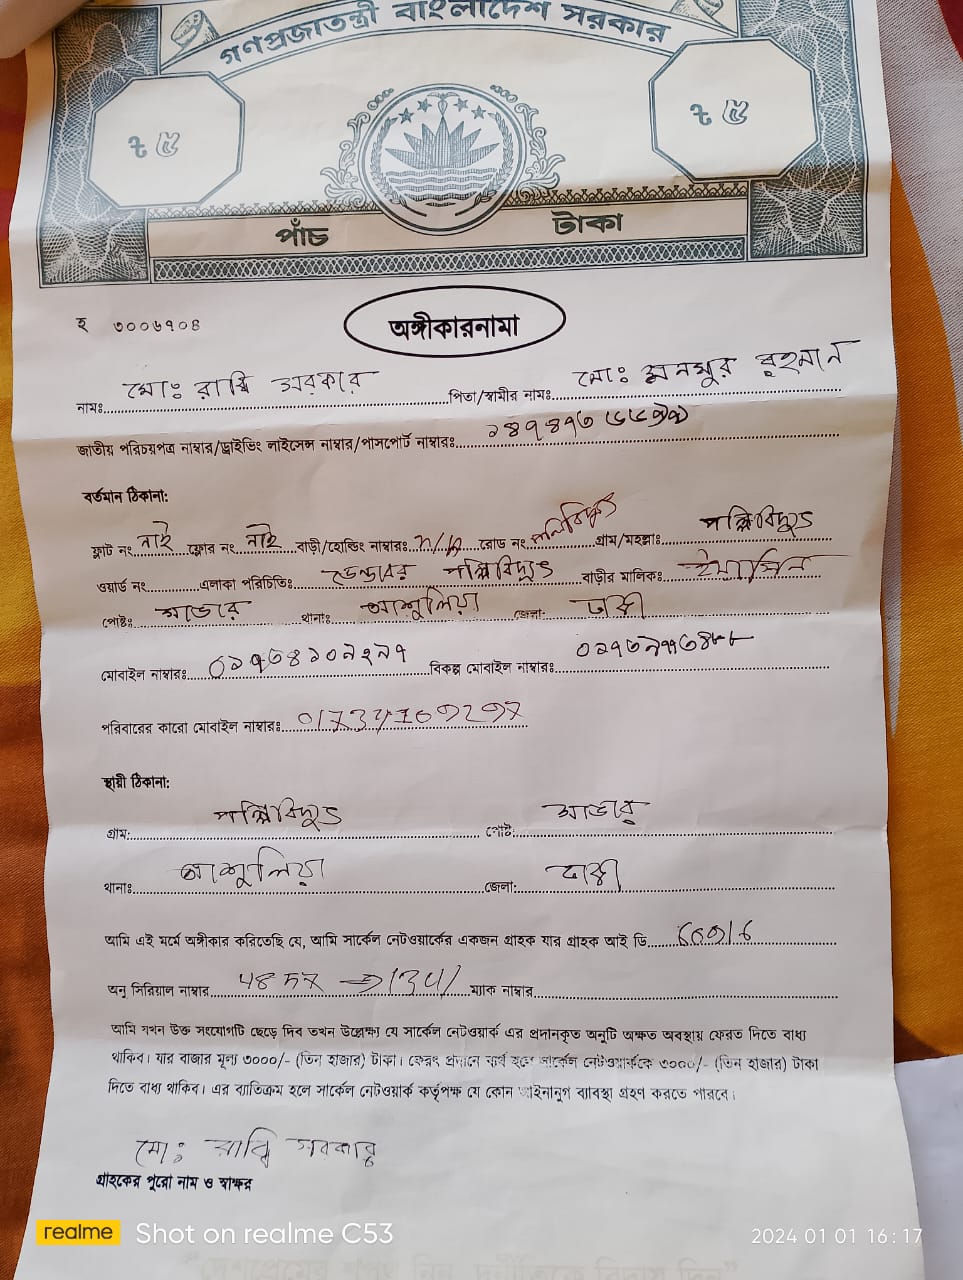 গণপ্রজাতন্ত্রী বাংলাদেশ সরকার
৳ ৫ ৳ ৫
পাঁচ টাকা
হ ৩০০৬৭০৪
অঙ্গীকারনামা
নামঃ মোঃ রাব্বি সরকার পিতা/স্বামীর নামঃ মোঃ মনসুর রহমান
জাতীয় পরিচয়পত্র নাম্বার/ড্রাইভিং লাইসেন্স নাম্বার/পাসপোর্ট নাম্বারঃ
বর্তমান ঠিকানা:
ফ্লাট নং নাই ফ্লোর নং নাই বাড়ী/হোল্ডিং নাম্বারঃ n/A রোড নং পল্লিবিদ্যুৎ গ্রাম/মহল্লাঃ পল্লিবিদ্যুৎ
ওয়ার্ড নং এলাকা পরিচিতিঃ ডেন্ডাবর পল্লিবিদ্যুৎ বাড়ীর মালিকঃ ইয়াসিন
পোষ্টঃ সাভার থানাঃ আশুলিয়া জেলাঃ ঢাকা
মোবাইল নাম্বারঃ বিকল্প মোবাইল নাম্বারঃ
পরিবারের কারো মোবাইল নাম্বারঃ
স্থায়ী ঠিকানা:
গ্রাম: পল্লিবিদ্যুৎ পোষ্ট: সাভার
থানাঃ আশুলিয়া জেলা: ঢাকা
আমি এই মর্মে অঙ্গীকার করিতেছি যে, আমি সার্কেল নেটওয়ার্কের একজন গ্রাহক যার গ্রাহক আই ডি
অনু সিরিয়াল নাম্বার ম্যাক নাম্বার
আমি যখন উক্ত সংযোগটি ছেড়ে দিব তখন উল্লেক্ষ্য যে সার্কেল নেটওয়ার্ক এর প্রদানকৃত অনুটি অক্ষত অবস্থায় ফেরত দিতে বাধ্য
থাকিব। যার বাজার মূল্য ৩০০০/- (তিন হাজার) টাকা। ফেরৎ প্রদানে ব্যর্থ হলে সার্কেল নেটওয়ার্ককে ৩০০০/- (তিন হাজার) টাকা
দিতে বাধ্য থাকিব। এর ব্যতিক্রম হলে সার্কেল নেটওয়ার্ক কর্তৃপক্ষ যে কোন আইনানুগ ব্যাবস্থা গ্রহণ করতে পারবে।
মোঃ রাব্বি সরকার
গ্রাহকের পুরো নাম ও স্বাক্ষর
realme Shot on realme C53 2024 01 01 16:17